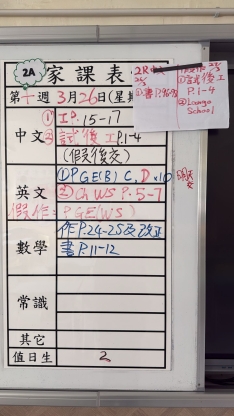 2A 家課表
第十週3月26日(星期
中文
① 工P.15-17
② 試後工P.1-4
(假後交)
英文
①PGE(B) C, D x10
② Ch WS P. 5-7
假作: PGE(WS)
數學
作P.24-25及改正
書P.11-12
常識
其它
值日生 2
試後工
P.1-4
②Lango
School